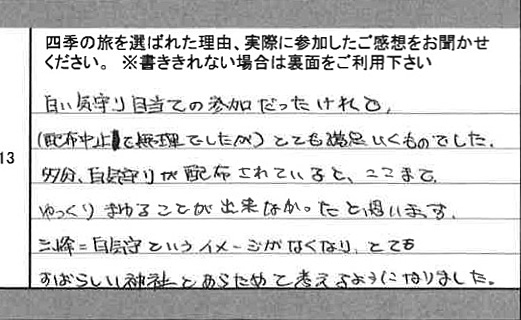 四季の旅を選ばれた理由、実際に参加したご感想をお聞かせ
ください。 ※書ききれない場合は裏面をご利用下さい
13
白い気守り目当ての参加だったけれど、
(配布中止で無理でしたが) とても満足いくものでした。
多分、白気守りが配布されていると、ここまで
ゆっくりまわることが出来なかったと思います。
三峰=白気守というイメージがなくなり、とても
すばらしい神社とあらためて考えるようになりました。